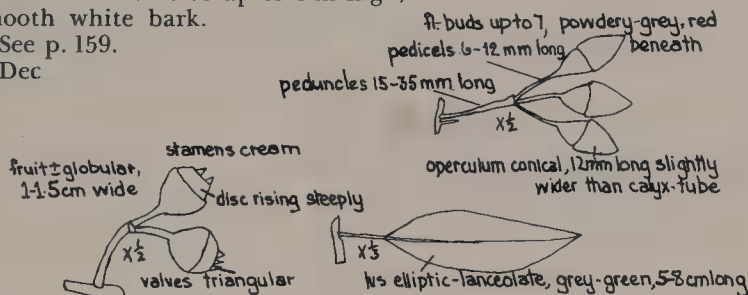 smooth white bark.
See p. 159.
Dec
fl-buds up to 7, powdery-grey, red
beneath
pedicels 6-12 mm long
peduncles 15-35 mm long
x½
operculum conical, 12mm long slightly
wider than calyx-tube
stamens cream
fruit ± globular,
1-1.5cm wide
disc rising steeply
x½
valves triangular
x⅓
lvs elliptic-lanceolate, grey-green, 5-8cm long